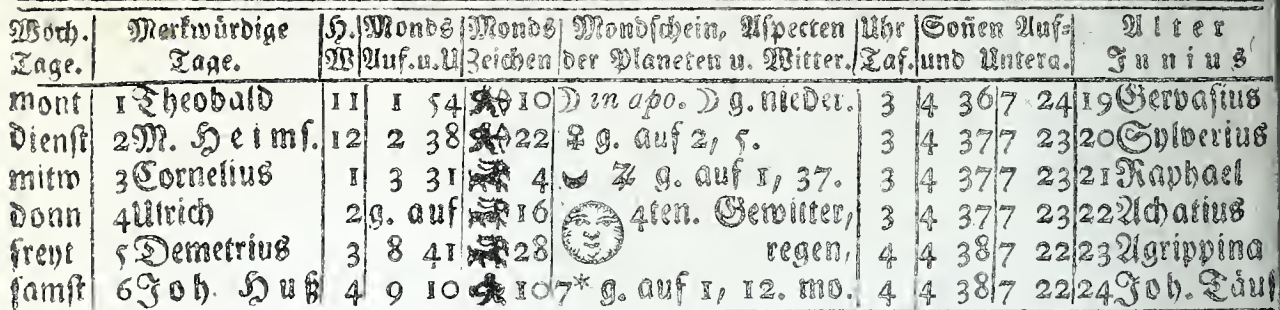 Woch. Merkwürdige H. Monds Monds Mondschein, Aspecten Uhr Soñen Auf- Alter
Tage. Tage. W Auf.u.U Zeichen der Planeten u. Witter. Taf. und Unterg. Junius
mont 1 Theobald 11 1 54 10 ☽ in apo. ☽ g. nieder. 3 4 36 7 24 19 Gervasius
dienst 2 M. Heims. 12 2 38 22 ♀ g. auf 2, 5. 3 4 37 7 23 20 Sylverius
mitw 3 Cornelius 1 3 31 4 ♃ g. auf 1, 37. 3 4 37 7 23 21 Raphael
donn 4 Ulrich 2 g. auf 16 4ten. Gewitter, 3 4 37 7 23 22 Achatius
freyt 5 Demetrius 3 8 41 28 regen, 4 4 38 7 22 23 Agrippina
samst 6 Joh. Huß 4 9 10 10 7* g. auf 1, 12. mo. 4 4 38 7 22 24 Joh. Täuf